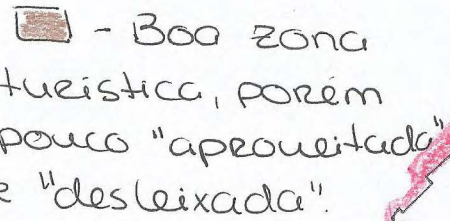 - Boa zona
turística, porém
pouco "aproveitada"
e "desleixada".